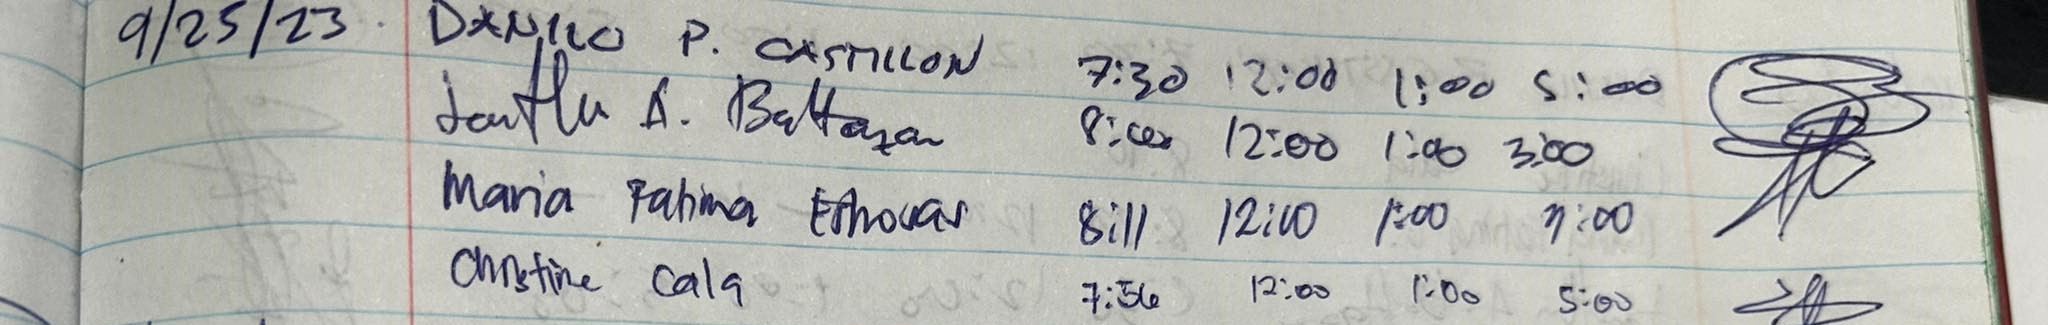 9/25/23. DANILO P. CASTILLON 7:30 12:00 1:00 5:00
A. Baltazar 12:00 1:00 3:00
Maria Fatima 8:11 12:00 1:00
Christine Cala 7:56 12:00 1:00 5:00